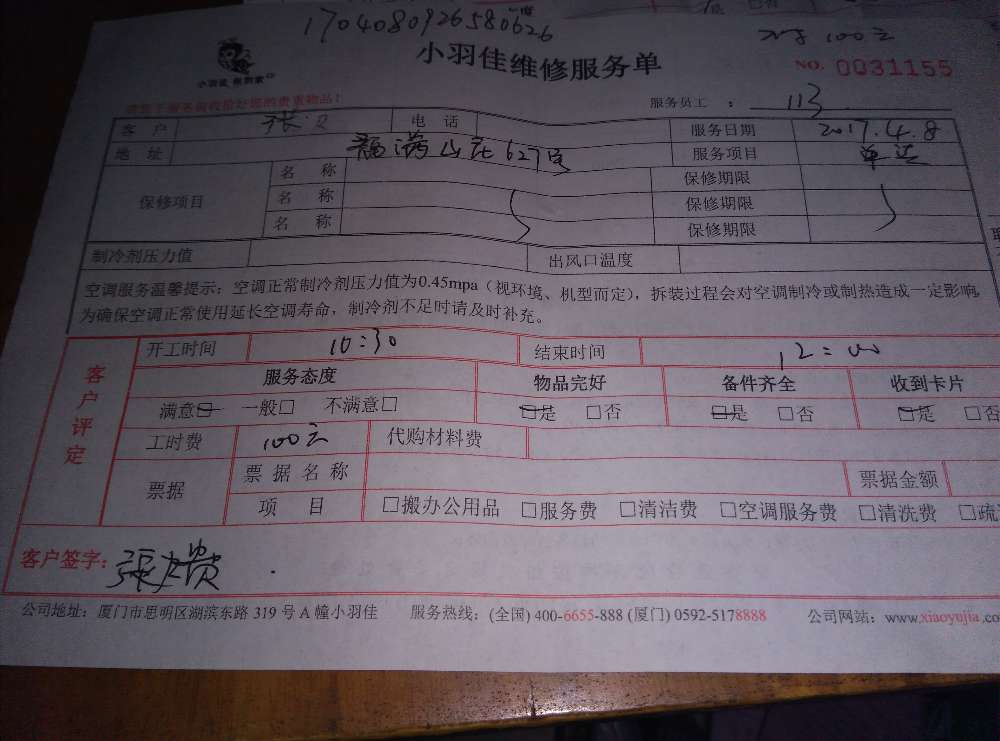 170408092658062​6
对于 100元
小羽佳维修服务单
NO. 0031155
小羽佳
服务员工 : 113
客 户 张 电 话 服务日期 2017.4.8
地 址 福满山庄627号 服务项目
保修项目 名 称 保修期限
名 称 保修期限
名 称 保修期限
制冷剂压力值 出风口温度
空调服务温馨提示：空调正常制冷剂压力值为0.45mpa（视环境、机型而定），拆装过程会对空调制冷或制热造成一定影响，
为确保空调正常使用延长空调寿命，制冷剂不足时请及时补充。
客户评定
开工时间 10:30 结束时间 12:00
服务态度 物品完好 备件齐全 收到卡片
满意☑ 一般□ 不满意□ ☑是 □否 ☑是 □否 ☑是 □否
工时费 100元 代购材料费
票据 票据名称 票据金额
项 目 □搬办公用品 □服务费 □清洁费 □空调服务费 □清洗费 □疏
客户签字：張
公司地址：厦门市思明区湖滨东路 319 号 A 幢小羽佳 服务热线：(全国) 400-6655-888 (厦门) 0592-5178888 公司网站：www.xiaoyujia.co